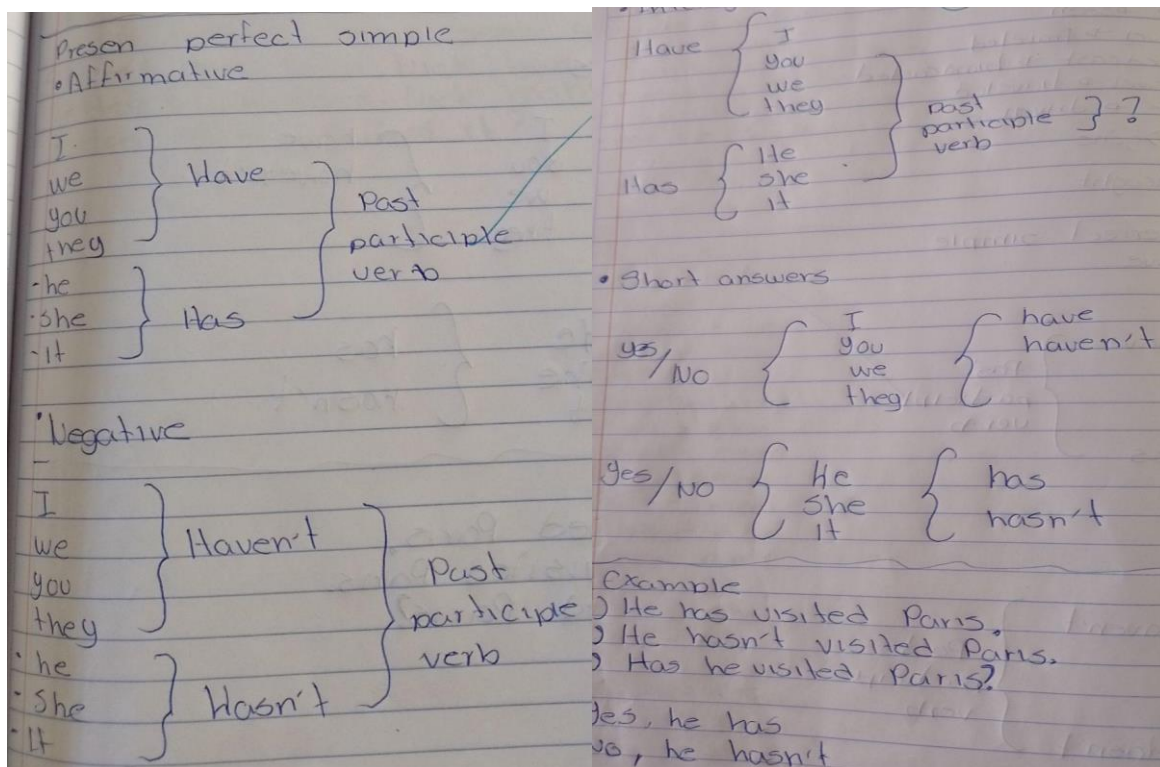 Presen perfect simple
• Affirmative
I
we
you
they
Have
- he
- she
- It
Has
Past
participle
verb
• Negative
I
we
you
they
Haven't
• he
- She
- It
Hasn't
Past
participle
verb
Have
I
you
we
they
Has
He
she
it
past
participle
verb
?
• Short answers
yes/NO
I
you
we
they
have
haven't
yes/NO
He
She
It
has
hasn't
Example
) He has visited Paris.
) He hasn't visited Paris.
) Has he visited Paris?
Yes, he has
No, he hasn't